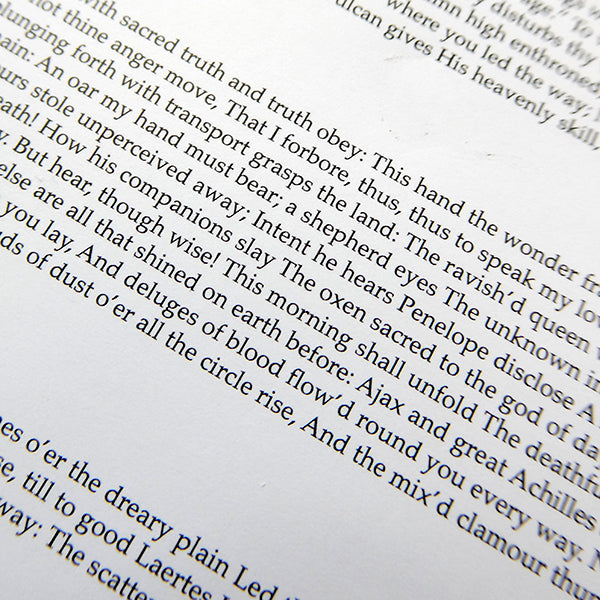 age,” To
disturbs thy
high enthroned,
where you led the way;
gives His heavenly skill,
with sacred truth and truth obey: This hand the wonder
not thine anger move, That I forbore, thus, thus to speak my
plunging forth with transport grasps the land: The ravish’d queen
An oar my hand must bear; a shepherd eyes The unknown
stole unperceived away; Intent he hears Penelope disclose
How his companions slay The oxen sacred to the god of
But hear, though wise! This morning shall unfold The
else are all that shined on earth before: Ajax and great Achilles
you lay, And deluges of blood flow’d round you every way.
of dust o’er all the circle rise, And the mix’d clamour
o’er the dreary plain Led
till to good Laertes
way: The